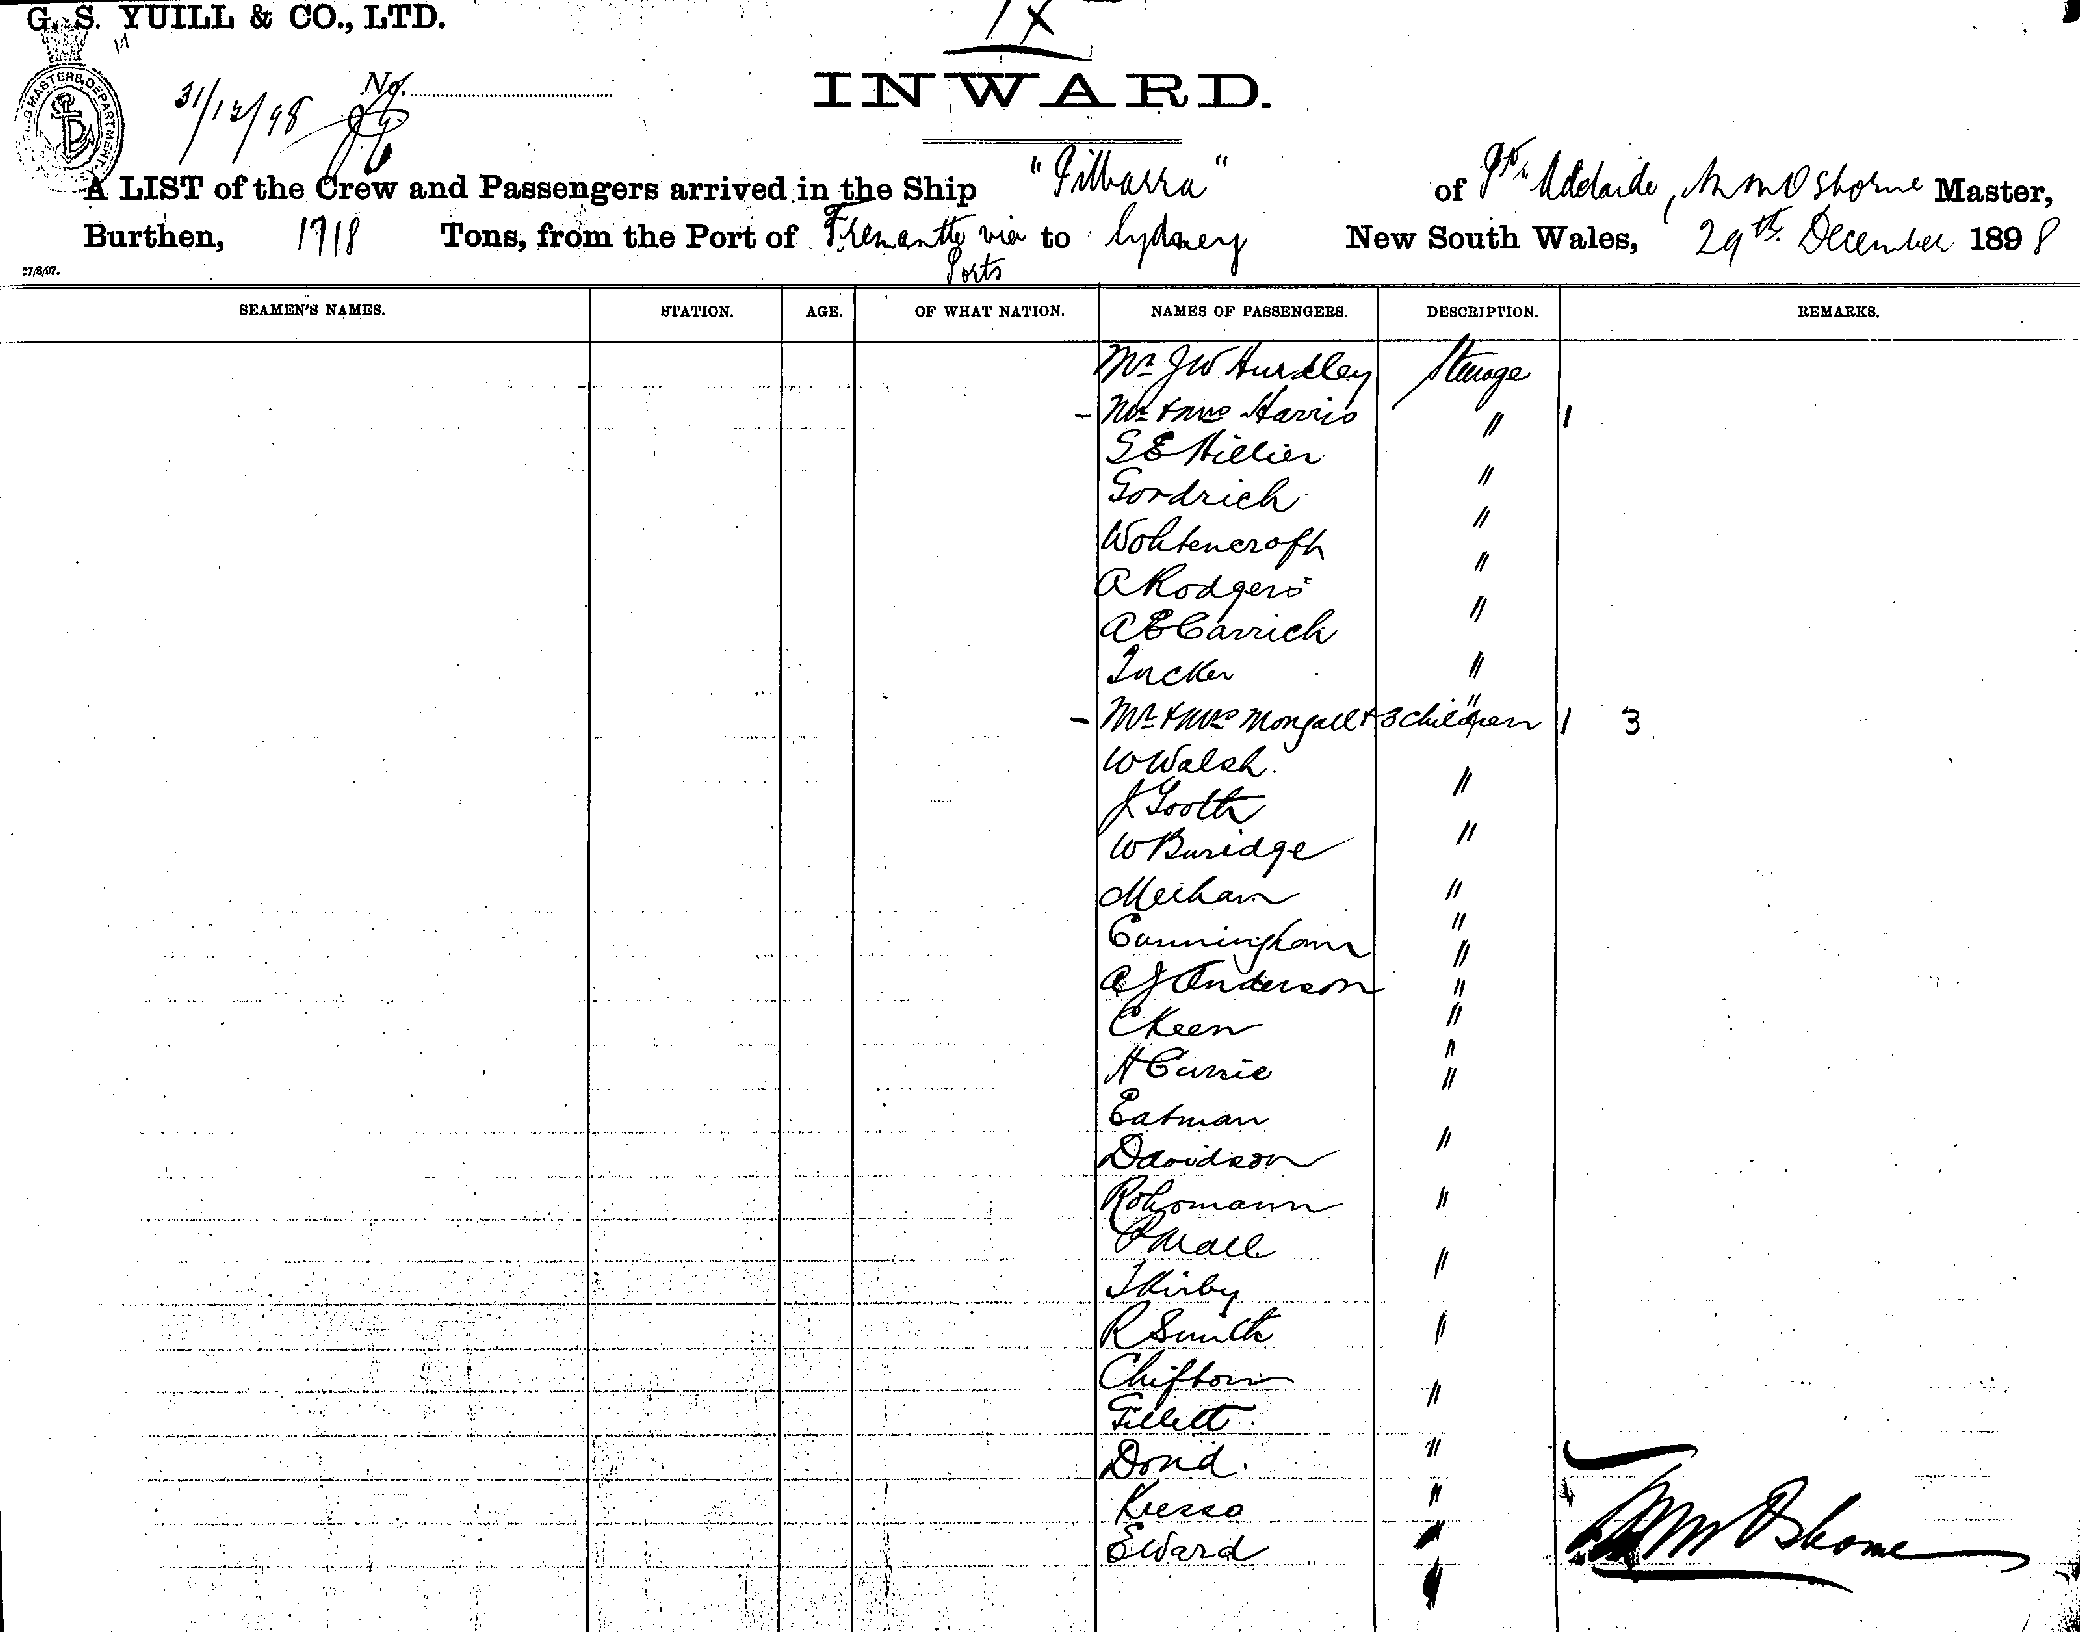 G. S. YUILL & CO., LTD.
INWARD.
No.
31/12/98
A LIST of the Crew and Passengers arrived in the Ship "Pilbarra" of Pt. Adelaide, Osborne Master,
Burthen, 1718 Tons, from the Port of Fremantle via Ports to Sydney New South Wales, 29th December 1898
27/8/97.
SEAMEN'S NAMES. STATION. AGE. OF WHAT NATION. NAMES OF PASSENGERS. DESCRIPTION. REMARKS.
Mr J W Hurdley Steerage
- Mr & Mrs Harris " 1
G E Hillier "
Gordrich "
Wohtencroft "
A Rodgers "
A E Carrick "
Tucker "
- Mr & Mrs Mongall & 3 children " 1 3
W Walsh "
J Gooth "
W Buridge
Meehan "
Cunningham "
A J Anderson "
C Keen "
H Currie "
Eatman
Davidson "
"
P Mall
T Kirby "
R Smith "
Chifton "
Fillett
Dond "
Kresso "
E Ward "
Osborne